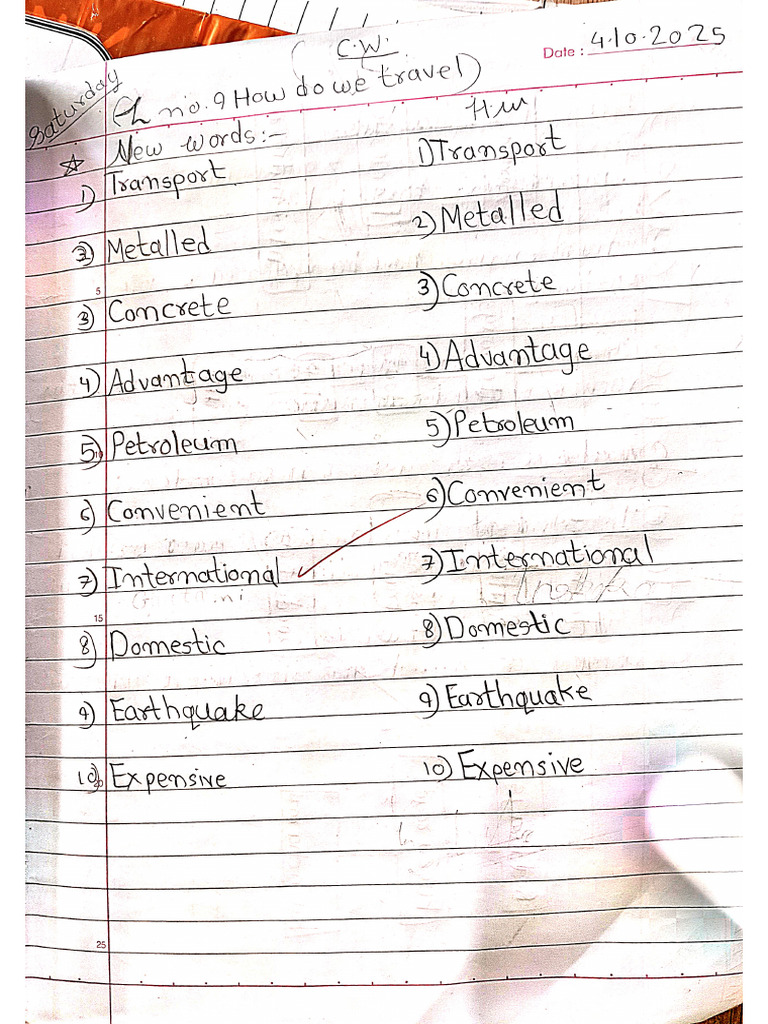 C.W.
Date : 4.10.2025
Saturday
Ch no.9 How do we travel)
H.W
☆ New words:-
1) Transport 1) Transport
2) Metalled 2) Metalled
5
3) Concrete 3) Concrete
4) Advantage 4) Advantage
5) Petroleum 5) Petroleum
6) Convenient 6) Convenient
7) International 7) International
15
8) Domestic 8) Domestic
9) Earthquake 9) Earthquake
10) Expensive 10) Expensive
25